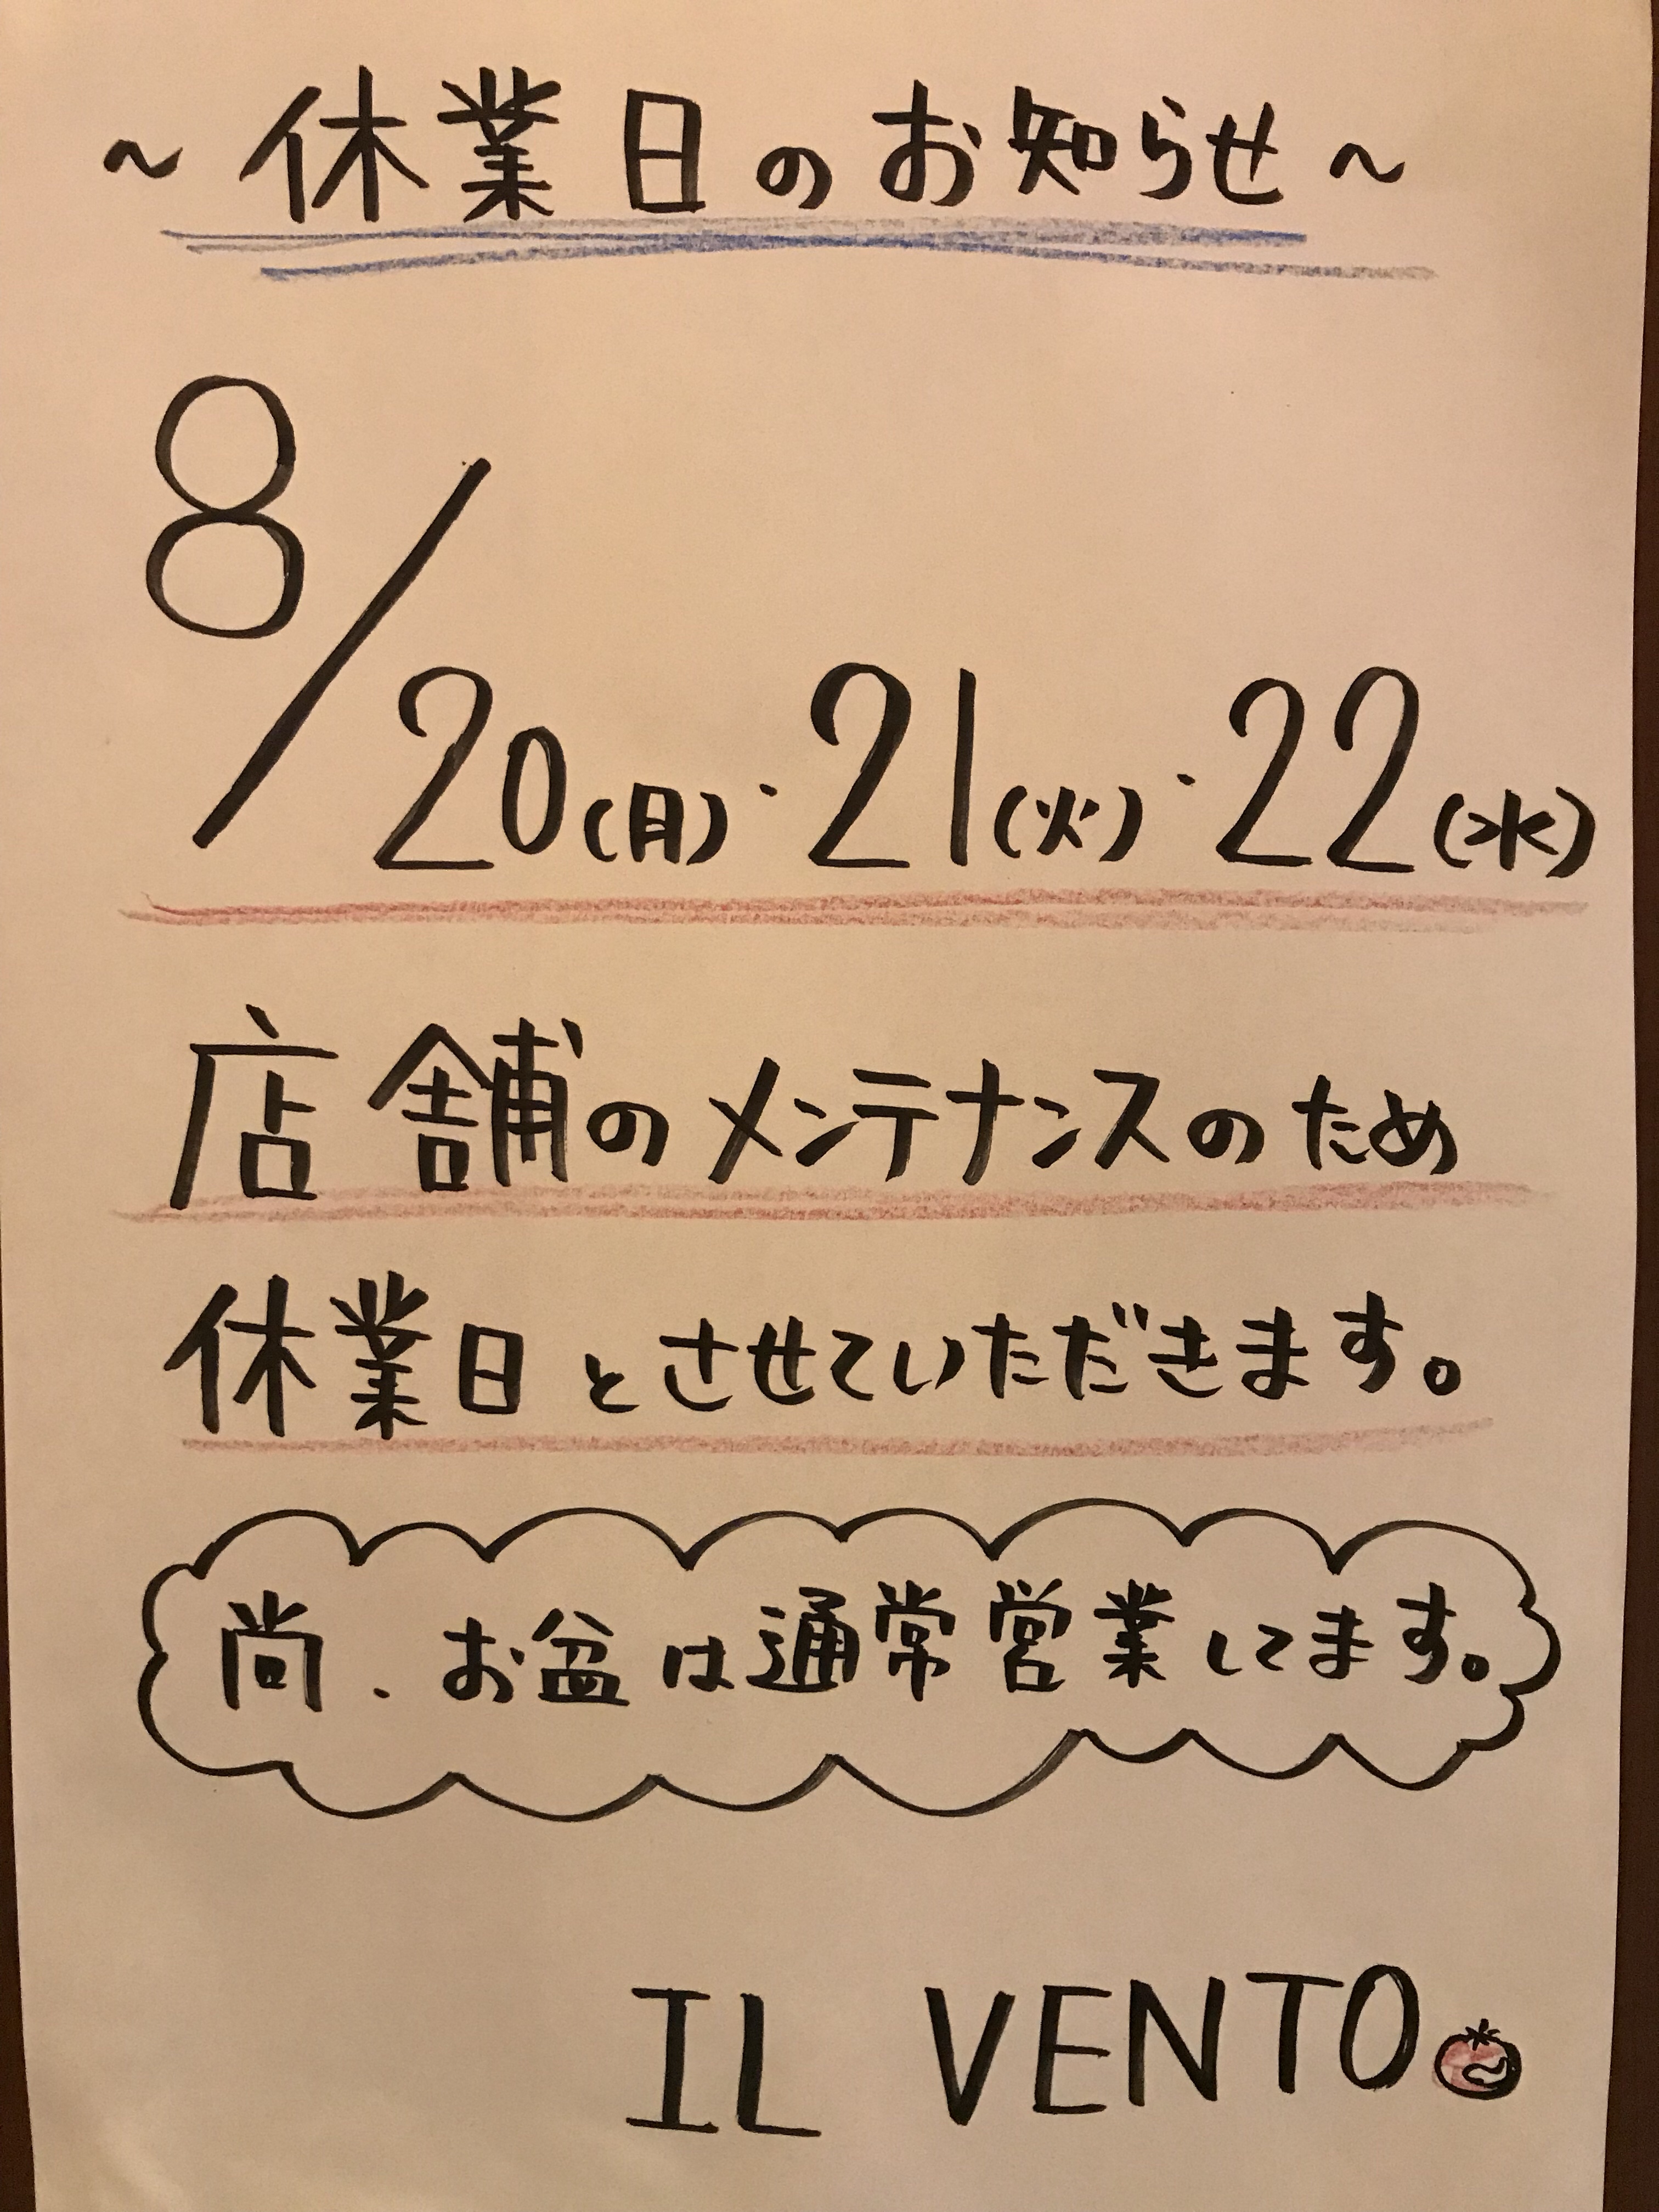 ~休業日のお知らせ~
8/20(月)・21(火)・22(水)
店舗のメンテナンスのため
休業日とさせていただきます。
尚、お盆は通常営業してます。
IL VENTO